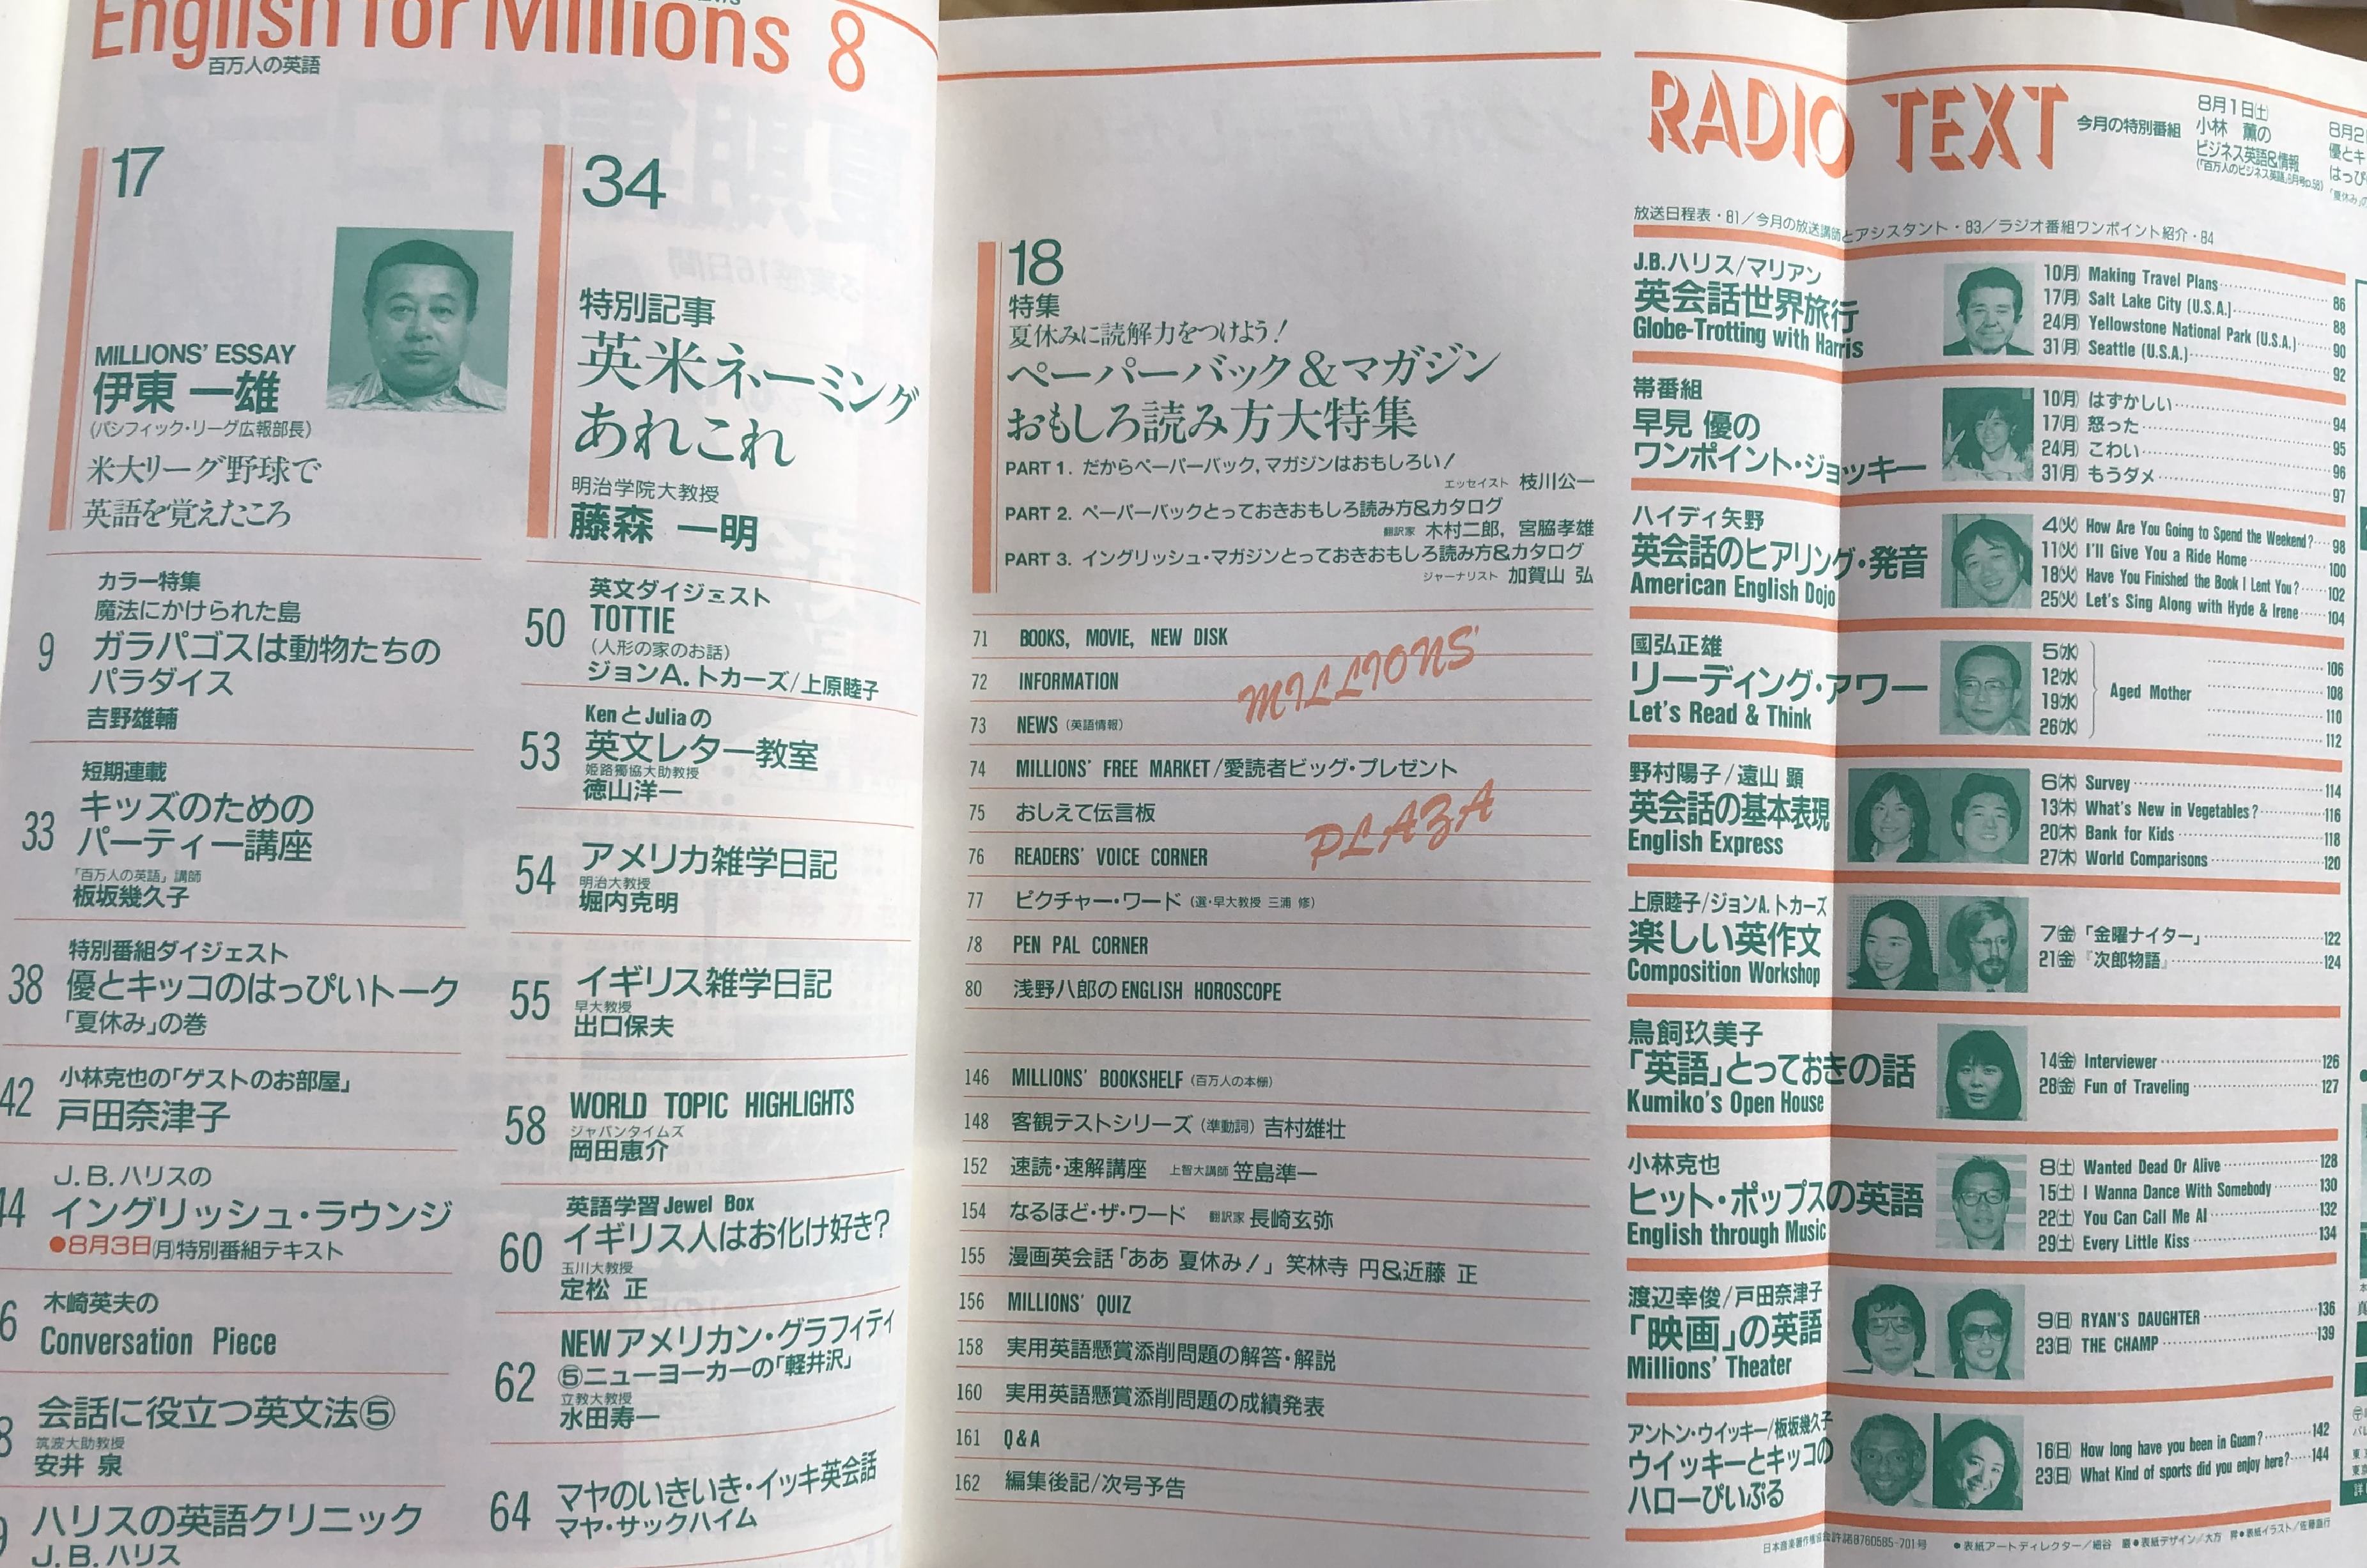 English for Millions 8
百万人の英語
17
MILLIONS' ESSAY
伊東 一雄
(パシフィック・リーグ広報部長)
米大リーグ野球で
英語を覚えたころ
34
特別記事
英米ネーミング
あれこれ
明治学院大教授
藤森 一明
カラー特集
魔法にかけられた島
9 ガラパゴスは動物たちの
パラダイス
吉野雄輔
短期連載
33 キッズのための
パーティー講座
「百万人の英語」講師
板坂幾久子
特別番組ダイジェスト
38 優とキッコのはっぴいトーク
「夏休み」の巻
42 小林克也の「ゲストのお部屋」
戸田奈津子
J.B.ハリスの
44 イングリッシュ・ラウンジ
●8月3日(月)特別番組テキスト
木崎英夫の
6 Conversation Piece
8 会話に役立つ英文法⑤
筑波大助教授
安井 泉
9 ハリスの英語クリニック
J.B.ハリス
英文ダイジェスト
50 TOTTIE
(人形の家のお話)
ジョンA.トカーズ/上原睦子
KenとJuliaの
53 英文レター教室
姫路獨協大助教授
徳山洋一
54 アメリカ雑学日記
明治大教授
堀内克明
55 イギリス雑学日記
早大教授
出口保夫
58 WORLD TOPIC HIGHLIGHTS
ジャパンタイムズ
岡田恵介
英語学習Jewel Box
60 イギリス人はお化け好き?
玉川大教授
定松 正
NEWアメリカン・グラフィティ
62 ⑤ニューヨーカーの「軽井沢」
立教大教授
水田寿一
64 マヤのいきいき・イッキ英会話
マヤ・サックハイム
18
特集
夏休みに読解力をつけよう!
ペーパーバック&マガジン
おもしろ読み方大特集
PART 1. だからペーパーバック,マガジンはおもしろい!
エッセイスト 枝川公一
PART 2. ペーパーバックとっておきおもしろ読み方&カタログ
翻訳家 木村二郎, 宮脇孝雄
PART 3. イングリッシュ・マガジンとっておきおもしろ読み方&カタログ
ジャーナリスト 加賀山 弘
MILLIONS'
PLAZA
71 BOOKS, MOVIE, NEW DISK
72 INFORMATION
73 NEWS (英語情報)
74 MILLIONS' FREE MARKET/愛読者ビッグ・プレゼント
75 おしえて伝言板
76 READERS' VOICE CORNER
77 ピクチャー・ワード (選・早大教授 三浦 修)
78 PEN PAL CORNER
80 浅野八郎のENGLISH HOROSCOPE
146 MILLIONS' BOOKSHELF (百万人の本棚)
148 客観テストシリーズ (準動詞) 吉村雄壮
152 速読・速解講座 上智大講師 笠島準一
154 なるほど・ザ・ワード 翻訳家 長崎玄弥
155 漫画英会話「ああ 夏休み!」 笑林寺 円&近藤 正
156 MILLIONS' QUIZ
158 実用英語懸賞添削問題の解答・解説
160 実用英語懸賞添削問題の成績発表
161 Q&A
162 編集後記/次号予告
RADIO TEXT
今月の特別番組
8月1日(土)
小林 薫の
ビジネス英語&情報
(「百万人のビジネス英語」8月号p.58)
8月2
優とキ
はっぴ
「夏休み」の
放送日程表・81/今月の放送講師とアシスタント・83/ラジオ番組ワンポイント紹介・84
J.B.ハリス/マリアン
英会話世界旅行
Globe-Trotting with Harris
10(月) Making Travel Plans 86
17(月) Salt Lake City (U.S.A.) 88
24(月) Yellowstone National Park (U.S.A.) 90
31(月) Seattle (U.S.A.) 92
帯番組
早見 優の
ワンポイント・ジョッキー
10(月) はずかしい 94
17(月) 怒った 95
24(月) こわい 96
31(月) もうダメ 97
ハイディ矢野
英会話のヒアリング・発音
American English Dojo
4(火) How Are You Going to Spend the Weekend? 98
11(火) I'll Give You a Ride Home 100
18(火) Have You Finished the Book I Lent You? 102
25(火) Let's Sing Along with Hyde & Irene 104
國弘正雄
リーディング・アワー
Let's Read & Think
5(水) 106
12(水) Aged Mother 108
19(水) 110
26(水) 112
野村陽子/遠山 顕
英会話の基本表現
English Express
6(木) Survey 114
13(木) What's New in Vegetables? 116
20(木) Bank for Kids 118
27(木) World Comparisons 120
上原睦子/ジョンA.トカーズ
楽しい英作文
Composition Workshop
7(金) 「金曜ナイター」 122
21(金) 『次郎物語』 124
鳥飼玖美子
「英語」とっておきの話
Kumiko's Open House
14(金) Interviewer 126
28(金) Fun of Traveling 127
小林克也
ヒット・ポップスの英語
English through Music
8(土) Wanted Dead Or Alive 128
15(土) I Wanna Dance With Somebody 130
22(土) You Can Call Me Al 132
29(土) Every Little Kiss 134
渡辺幸俊/戸田奈津子
「映画」の英語
Millions' Theater
9(日) RYAN'S DAUGHTER 136
23(日) THE CHAMP 139
アントン・ウイッキー/板坂幾久子
ウイッキーとキッコの
ハローぴいぷる
16(日) How long have you been in Guam? 142
23(日) What Kind of sports did you enjoy here? 144
日本音楽著作権協会許諾8760585-701号
●表紙アートディレクター/細谷 巖●表紙デザイン/大方 昇●表紙イラスト/佐藤直行